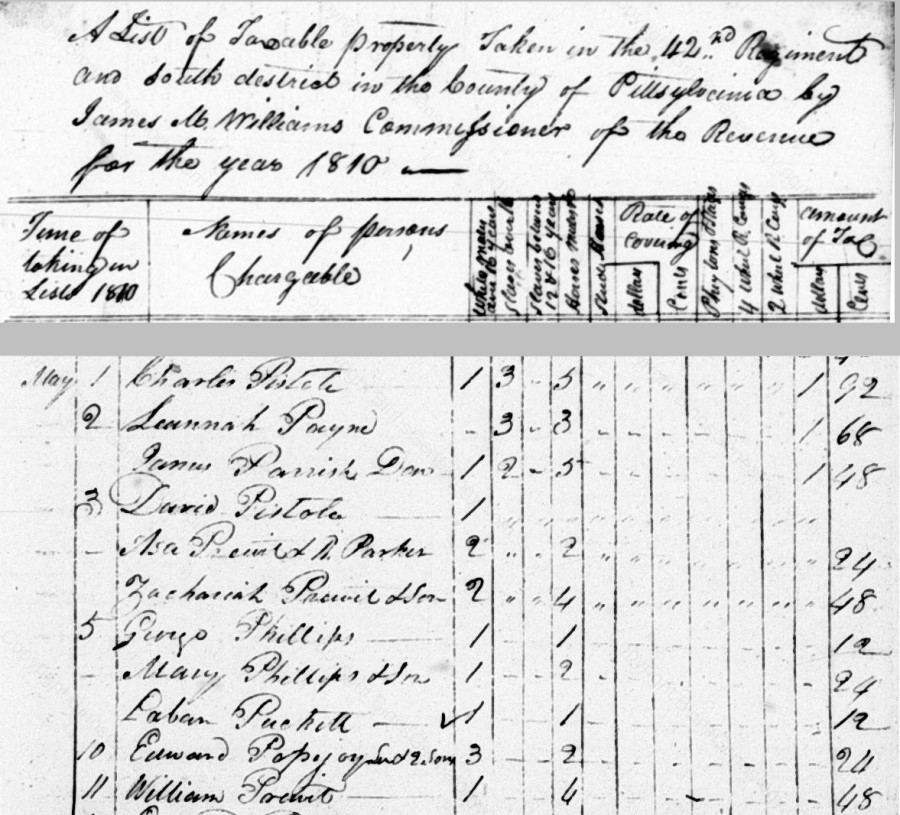 A List of Taxable property Taken in the 42nd Regiment
and south destrict in the County of Pittsylvania by
James M. Williams Commissioner of the Revenue
for the year 1810
Time of taking in Lists 1810
Names of persons Chargable
White males
Slaves
Slaves below 12 & 16 years
Horses mules
Studs
Rate of Covering
dollars
Cents
4 Wheel
2 Wheel
amount of Tax
dollars
Cents
May 1 Charles Pistole 1 3 " 5 " " " " " " " 1 92
2 Leannah Payne - 3 - 3 - - - - - - - 1 68
James Parrish Dan 1 2 - 5 - - - - - - - 1 48
3 David Pistole 1
- Asa Prewit & R. Parker 2 " " 2 24
Zachariah Prewit & Son 2 " " 4 " " " " " " " " 48
5 George Phillips 1 1 12
- Mary Phillips & Son 1 - - 2 24
Laban Puckett ✓ 1 1 12
10 Edward Popejoy & 2 sons 3 2 24
11 William Prewit 1 4 48